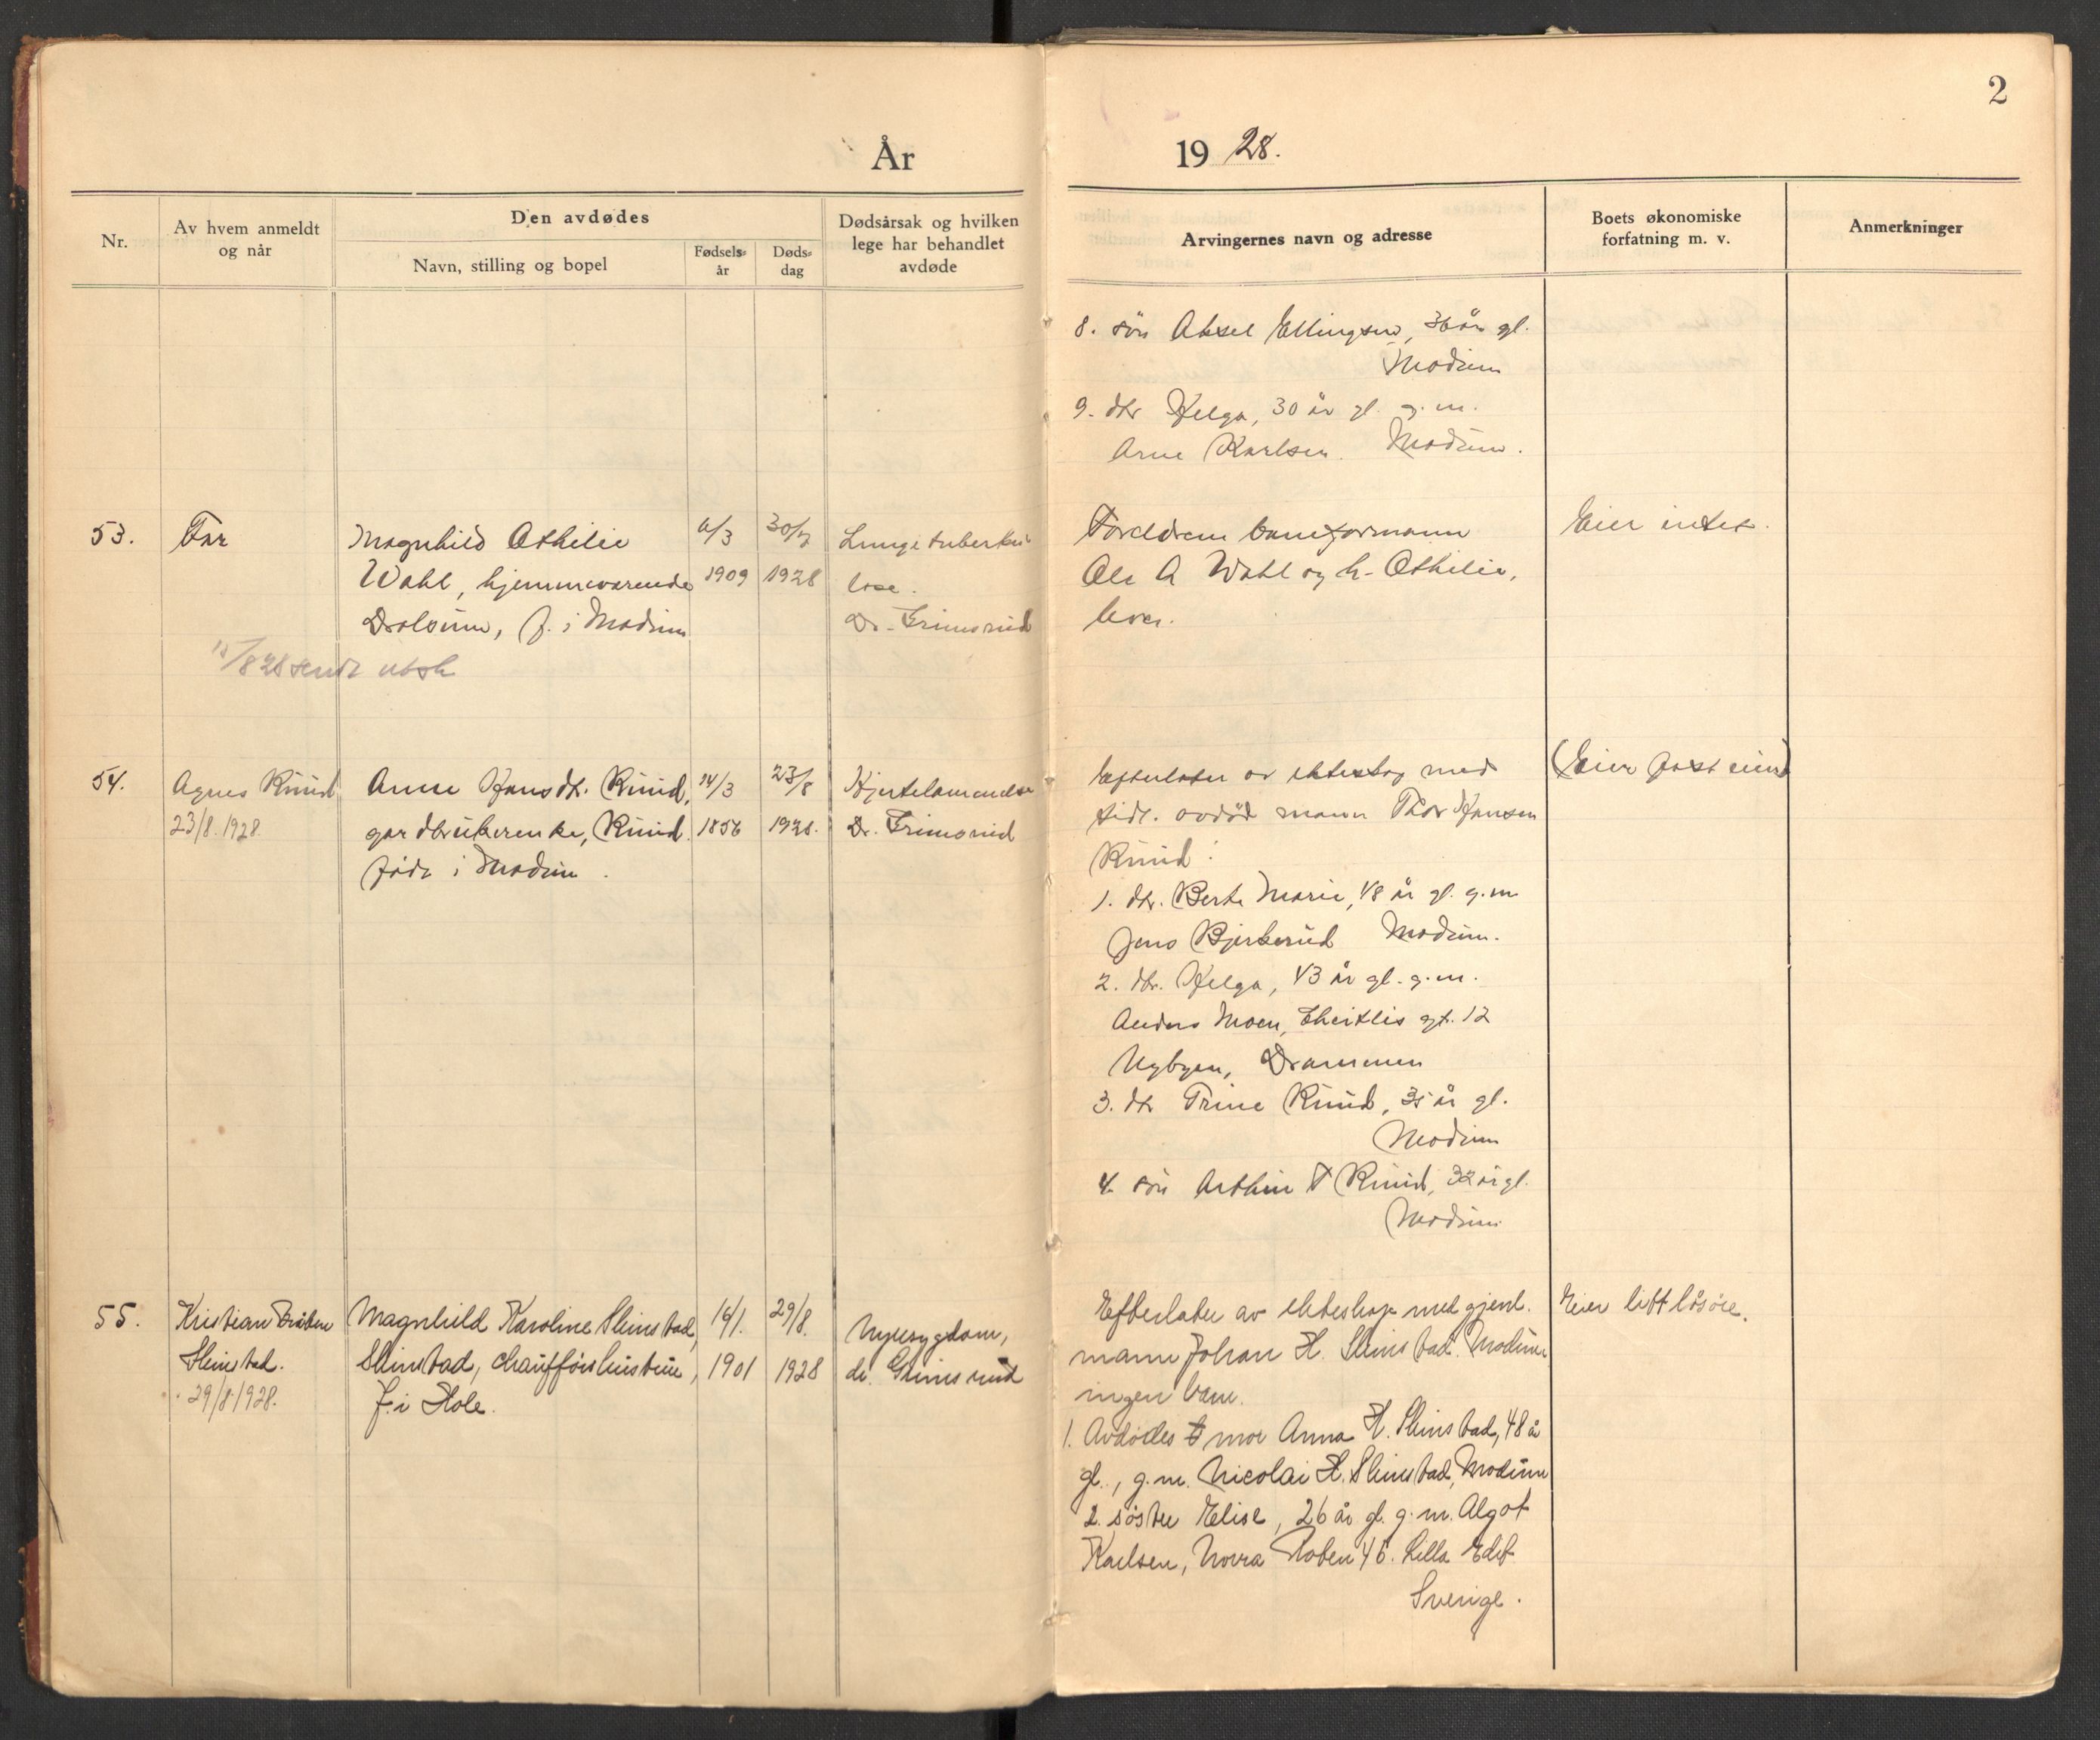 2
År
19 28.
Nr.
Av hvem anmeldt
og når
Den avdødes
Navn, stilling og bopel
Fødsels-
år
Døds-
dag
Dødsårsak og hvilken
lege har behandlet
avdøde
Arvingernes navn og adresse
Boets økonomiske
forfatning m. v.
Anmerkninger
8. søn Aksel Ellingsen, 36 år gl.
Modum
9. dtr Helga, 30 år gl. g. m.
Arne Karlsen. Modum.
53.
Far
Magnhild Othilie
Wahl, hjemmeværende
Drolsum, f. i Modum
/3
1909
30/7
1928
Lungetuberku-
lose.
Dr. Grimsrud
Foreldrene baneformann
Ole A Wahl og h. Othilie,
lever.
Eier intet.
15/8 28 sendt utsk
54.
Agnes Ruud
23/8. 1928.
Anne Hansdt. Ruud,
gardbrukerenke, Ruud.
født i Modum.
14/3
1856
23/8
1928.
Hjertelammelse
Dr. Grimsrud
Efterlater av ekteskap med
tidl. avdød mann Thor Hansen
Ruud:
1. dtr. Berte Marie, 48 år gl. g. m
Jens Bjerkerud Modum.
2. dtr. Helga, 43 år gl. g. m.
Anders Moen, gt. 12
Nybyen, Drammen
3. dtr Trine Ruud, 35 år gl.
Modum
4. søn Arthur T Ruud, 32 år gl.
Modum
(Eier fast eiend
55.
Kristian Bråten
Slimstad.
29/8 1928.
Magnhild Karoline Slimstad,
Slimstad, chaufførshustrue,
f. i Hole.
19/1.
1901
29/8.
1928
Nyresygdom,
dr. Grimsrud
Efterlater av ekteskap med gjenl.
mann Johan H. Slimstad. Modum
ingen barn.
1. Avdødes mor Anna H. Slimstad, 48 år
gl., g. m. Nicolai H. Slimstad, Modum
2. søster Elise, 26 år gl. g. m. Algot
Karlsen, Norra 46. Lilla Edet
Sverige.
Eier litt løsøre.